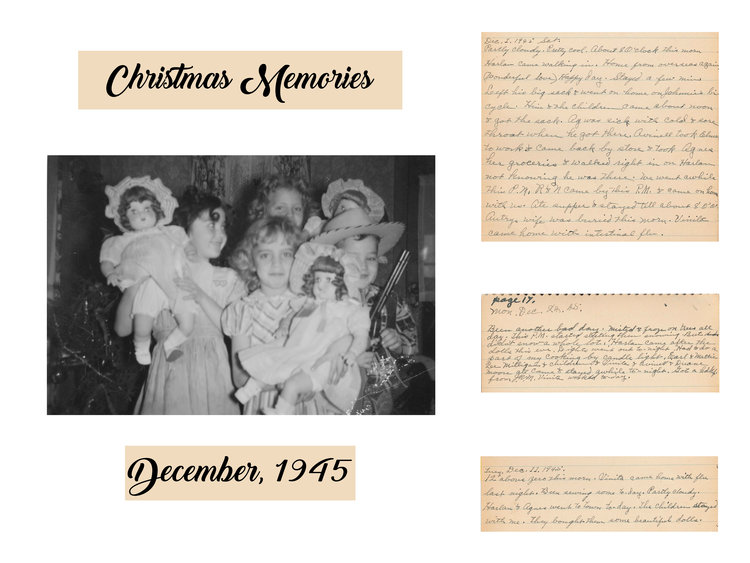 Christmas Memories
December, 1945
Dec. 1, 1945 Sat.
Partly cloudy. Pretty cool. About 8 O'clock this morn
Harlan came walking in. Home from overseas again
(Wonderful Love) Happy day. Stayed a few mins
left his big sack & went on home on bi
cycle. Him & the children came about noon
& got the sack. Ag was sick with cold & sore
throat when he got there. Avinell took
to work & came back by store & took Agnes
her groceries & walked right in on Harlan
not knowing he was there. We went awhile
this P.M. R & N came by this P.M. & came on home
with us. Ate supper & stayed till about 8 O'
Autrys wife was burried this morn. Vinita
came home with intestinal flu.
page 17.
Mon. Dec. 24, 45.
Been another bad day. Misted & froze on trees all
day. This P.M. started sleeting then snowing. But
didnt snow a whole lot. Harlan came after the
dolls this eve. Lights went out to-night. Had to do a
part of my cooking by candle light. Earl & Mattie
Lee & children & Vinita & &
Moore came & stayed awhile to-night. Got a
from. Vinita worked to-day.
Tues, Dec. 11, 1945.
12 above zero this morn. Vinita came home with flu
last night. Been sewing some to-day. Partly cloudy.
Harlan & Agnes went to town to-day. The children stayed
with me. They bought them some beautiful dolls.